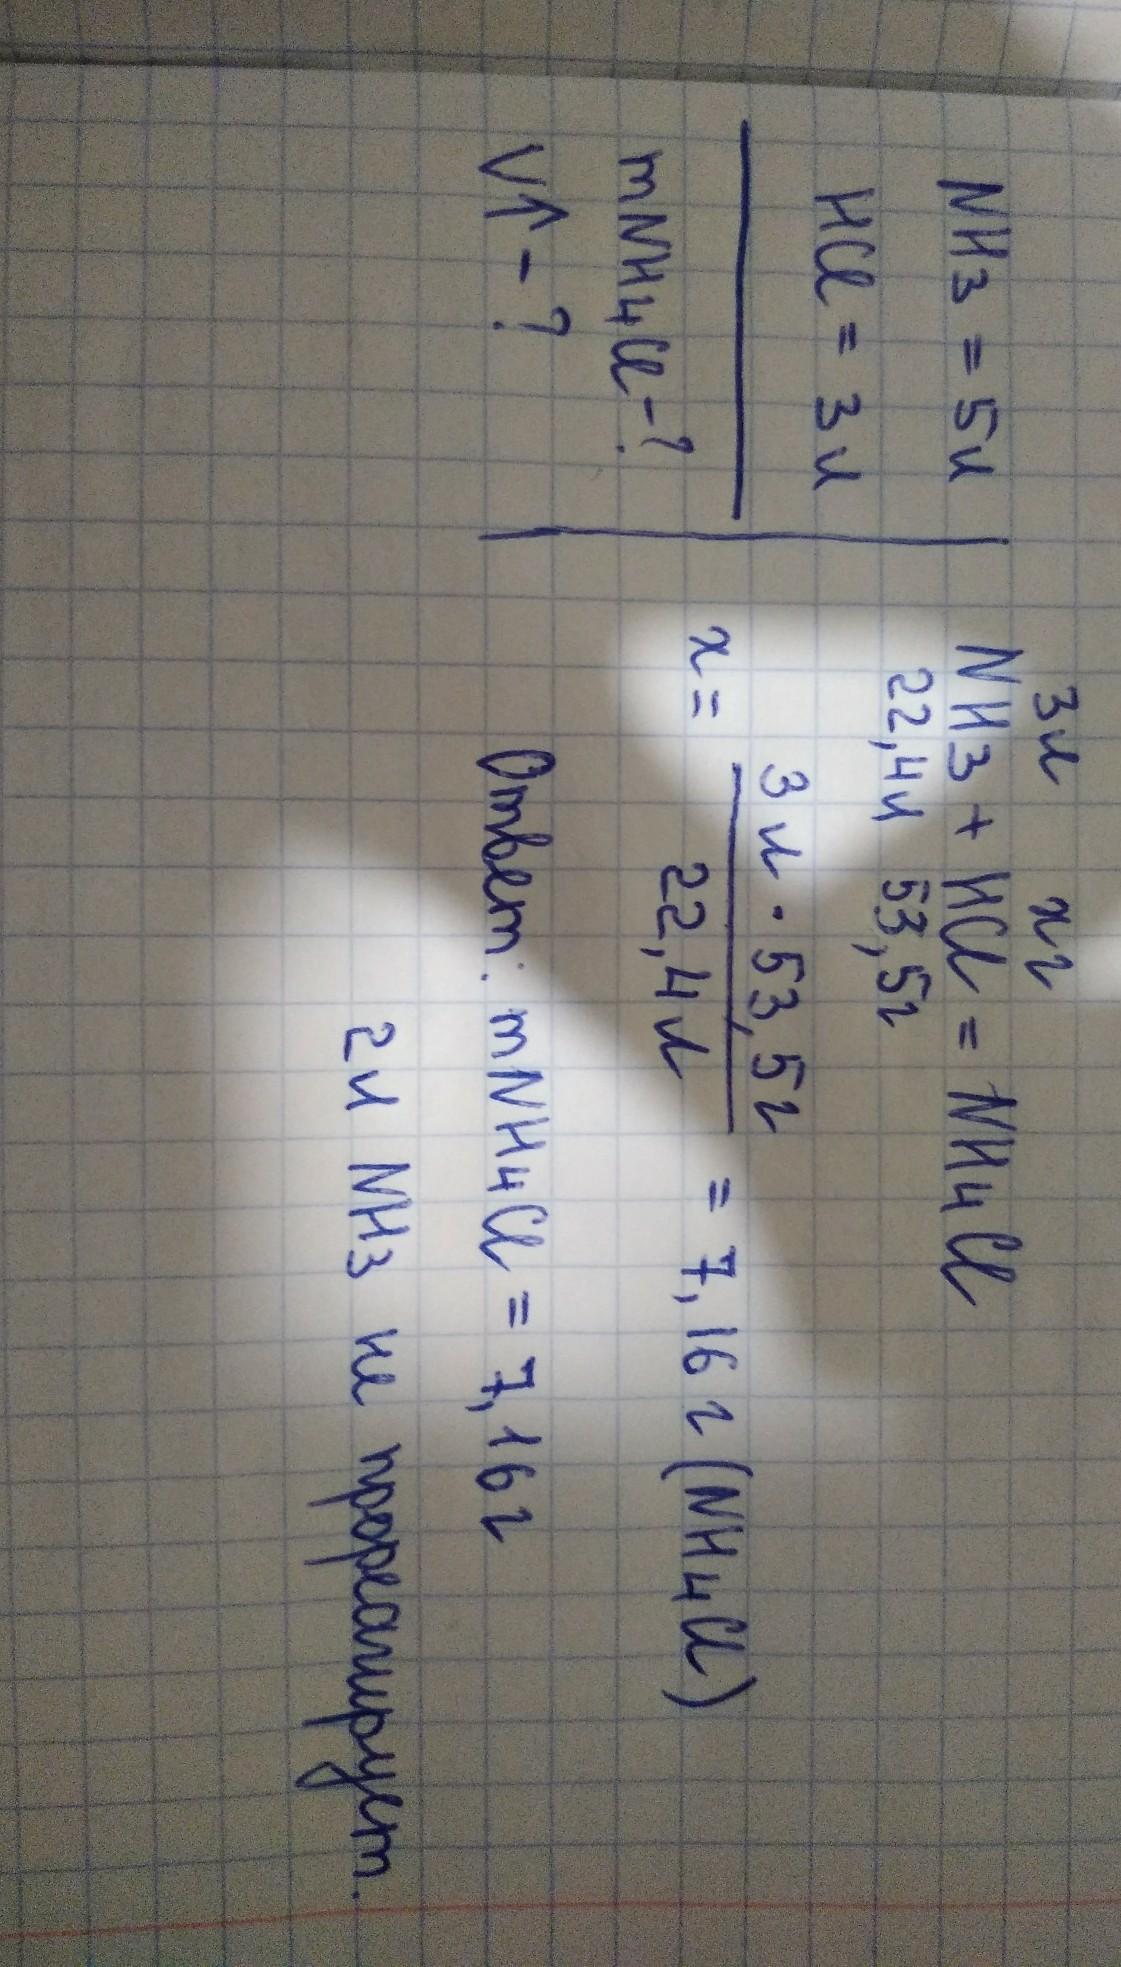 NH3 = 5л
HCl = 3л
mNH4Cl-?
V↑-?
3л хг
NH3 + HCl = NH4Cl
22,4л 53,5г
x = 3л · 53,5г / 22,4л = 7,16г (NH4Cl)
Ответ: mNH4Cl = 7,16г
2л NH3 не прореагирует.